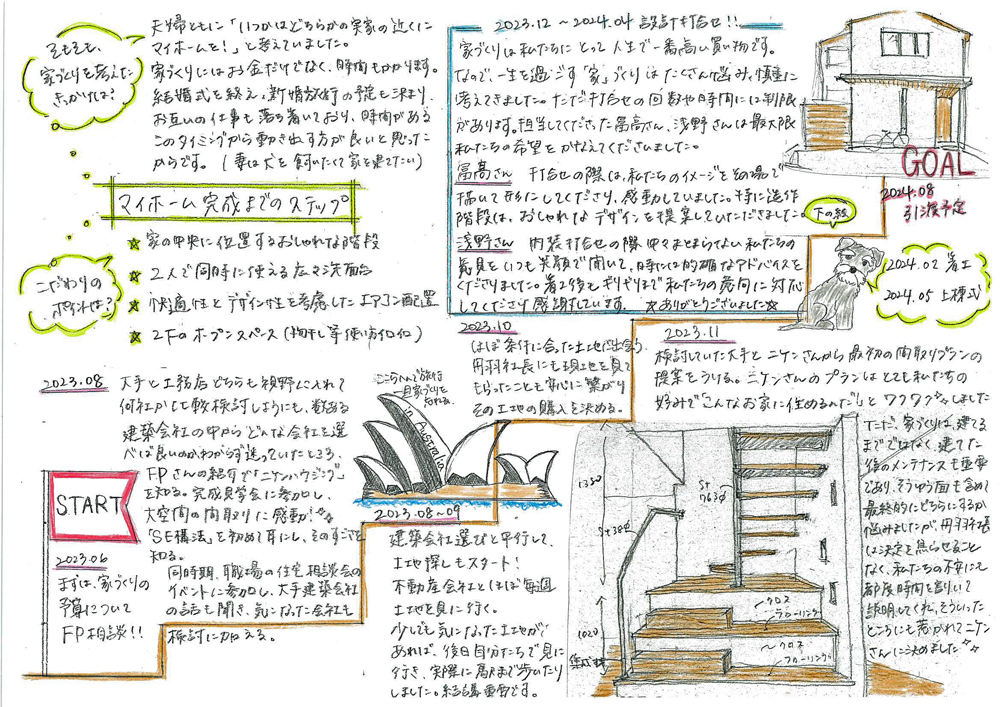 そもそも、
家づくりを考えた
きっかけは?
夫婦ともに「いつかはどちらかの実家の近くに
マイホームを!」と考えていました。
家づくりにはお金だけでなく、時間もかかります。
結婚式を終え、新婚旅行の予定も決まり、
お互いの仕事も落ち着いており、時間がある
このタイミングから動き出す方が良いと思った
からです。(妻は犬を飼いたくて家を建てたい)
マイホーム完成までのステップ
こだわりの
ポイントは?
★ 家の中央に位置するおしゃれな階段
★ 2人で同時に使える広々洗面台
★ 快適性とデザイン性を考慮したエアコン配置
★ 2Fのオープンスペース(物干し等使い方イロイロ)
START
2023.06
まずは、家づくりの
予算について
FP相談!!
2023.08
大手と工務店どちらも視野に入れて
何社か比較検討しようにも、数ある
建築会社の中からどんな会社を選
べば良いのか、わからず迷っていたところ、
FPさんの紹介で「ニケンハウジング」
を知る。完成見学会に参加し、
大空間の間取りに感動!
「SE構法」を初めて耳にし、そのすごさを
知る。
同時期、職場の住宅相談会の
イベントに参加し、大手建築会社
の話も聞き、気になった会社も
検討に加える。
in Australia
2023.08〜09
建築会社選びと平行して、
土地探しもスタート!
不動産会社とほぼ毎週
土地を見に行く。
少しでも気になった土地が
あれば、後日自分たちで見に
行き、実際に駅まで歩いたり
しました。結構重要です。
2023.10
ほぼ条件に合った土地に出会う。
丹羽社長にも現地を見て
もらったことも安心に繋がり
その土地の購入を決める。
2023.11
検討していた大手とニケンさんから最初の間取りプランの
提案をうける。ニケンさんのプランはとても私たちの
好みで「こんなお家に住めるんだ」とワクワクしました
ただ、家づくりは、建てる
までではなく、建てた
後のメンテナンスも重要
であり、そうゆう面も含めて
最終的にどちらにするか
悩みましたが、丹羽社長
は決定を焦らせること
なく、私たちの不安にも
都度時間を割いて
説明してくれ、そういった
ところにも惹かれてニケン
さんに決めました
2023.12 〜2024.04 設計打合せ!!
家づくりは私たちにとって人生で一番高い買い物です。
なので、一生を過ごす「家」づくりはたくさん悩み、慎重に
考えてきました。ただ打合せの回数や時間には制限
があります。担当してくださった冨高さん、浅野さんは最大限
私たちの希望をかなえてくださいました。
冨高さん 打合せの際は、私たちのイメージをその場で
描いて形にしてくださり、感動していました。特に造作
階段は、おしゃれなデザインを提案していただきました。
下の絵
浅野さん 内装打合せの際 中々まとまらない私たちの
意見をいつも笑顔で聞いて、時には的確なアドバイスを
くださりました。着工後もギリギリまで私たちの意向に対応
してくださり感謝しています。 ★ありがとうございました☆
2024.02 着工
2024.05 上棟式
GOAL
2024.08
引渡予定
1350
1020
クロス
フローリング
クロス
フローリング